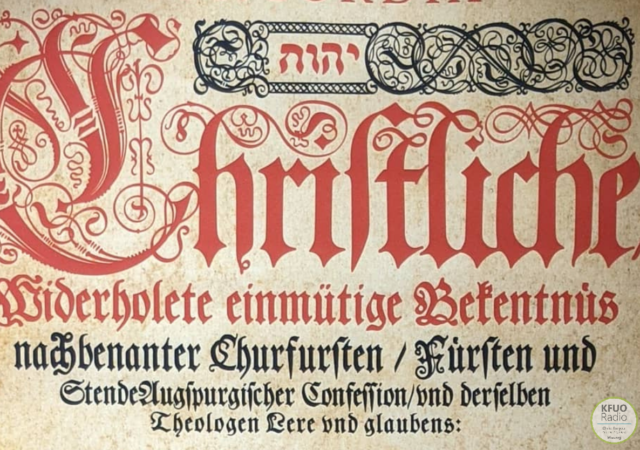 יהוה
Christliche,
Widerholete einmütige Bekentnüs
nachbenanter Churfursten / Fürsten und
Stende Augspurgischer Confession/vnd derselben
Theologen Lere vnd glaubens:
KFUO
Radio